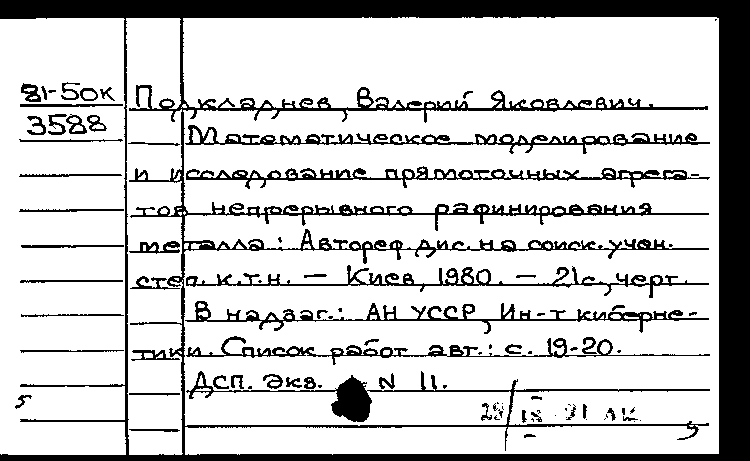 81-50к
3588
Подкладнев, Валерий Яковлевич.
Математическое моделирование
и исследование прямоточных агрега-
тов непрерывного рафинирования
металла: Автореф. дис. на соиск. учен.
степ. к.т.н. — Киев, 1980. — 21с., черт.
В надзаг.: АН УССР, Ин-т киберне-
тики. Список работ авт.: с. 19-20.
ДСП. Экз. N 11.
5